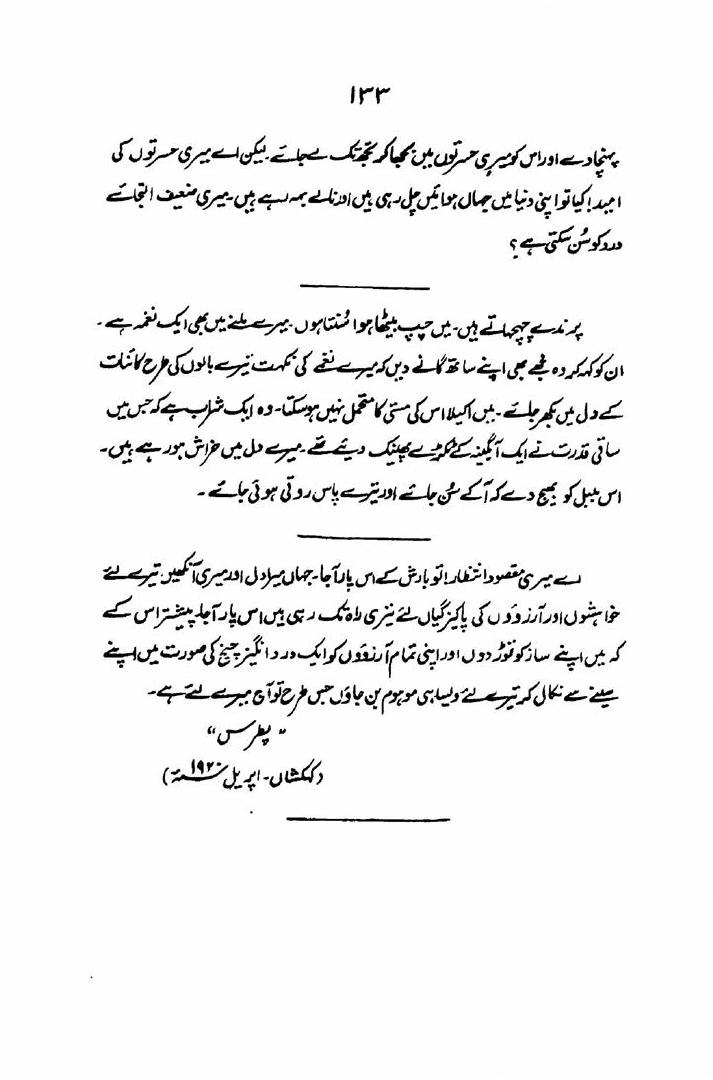 ۱۳۳
پہنچا دے اور اس کو میری حسرتوں میں بجھا کر تجھ تک لے جائے۔ لیکن اے میری حسرتوں کی
امید! کیا تو اپنی دنیا میں جہاں ہوائیں چل رہی ہیں اور نالے بہہ رہے ہیں۔ میری ضعیف التجائے
درد کو سُن سکتی ہے؟
پرندے چہچہاتے ہیں۔ میں چپ بیٹھا ہوا سُنتا ہوں۔ میرے سینے میں بھی ایک نغمہ ہے۔
ان کو کہہ کہ وہ مجھے بھی اپنے ساتھ گانے دیں کہ میرے نغمے کی نکہت تیرے بالوں کی طرح کائنات
کے دل میں بکھر جائے۔ میں اکیلا اس کی مستی کا متحمل نہیں ہو سکتا۔ وہ ایک شراب ہے کہ جس میں
ساقی قدرت نے ایک آبگینہ کے ٹکڑے پھینک دیئے تھے۔ میرے دل میں خراش ہو رہے ہیں۔
اس بلبل کو بھیج دے کہ آ کے سُن جائے اور تیرے پاس روتی ہوئی جائے۔
اے میری مقصودِ انتظار! تو بارش کے اس پار آ جا۔ جہاں میرا دل اور میری آنکھیں تیرے لئے
خواہشوں اور آرزوؤں کی پاکیزگیاں لئے تیری راہ تک رہی ہیں اس پار آ جا۔ پیشتر اس کے
کہ میں اپنے ساز کو توڑ دوں اور اپنی تمام آرزوؤں کو ایک درد انگیز چیخ کی صورت میں اپنے
سینے سے نکال کر تیرے لئے ویسا ہی موہوم بن جاؤں جس طرح تو آج میرے لئے ہے۔
"پطرس"
(کہکشاں۔ اپریل ۱۹۲۰ء)